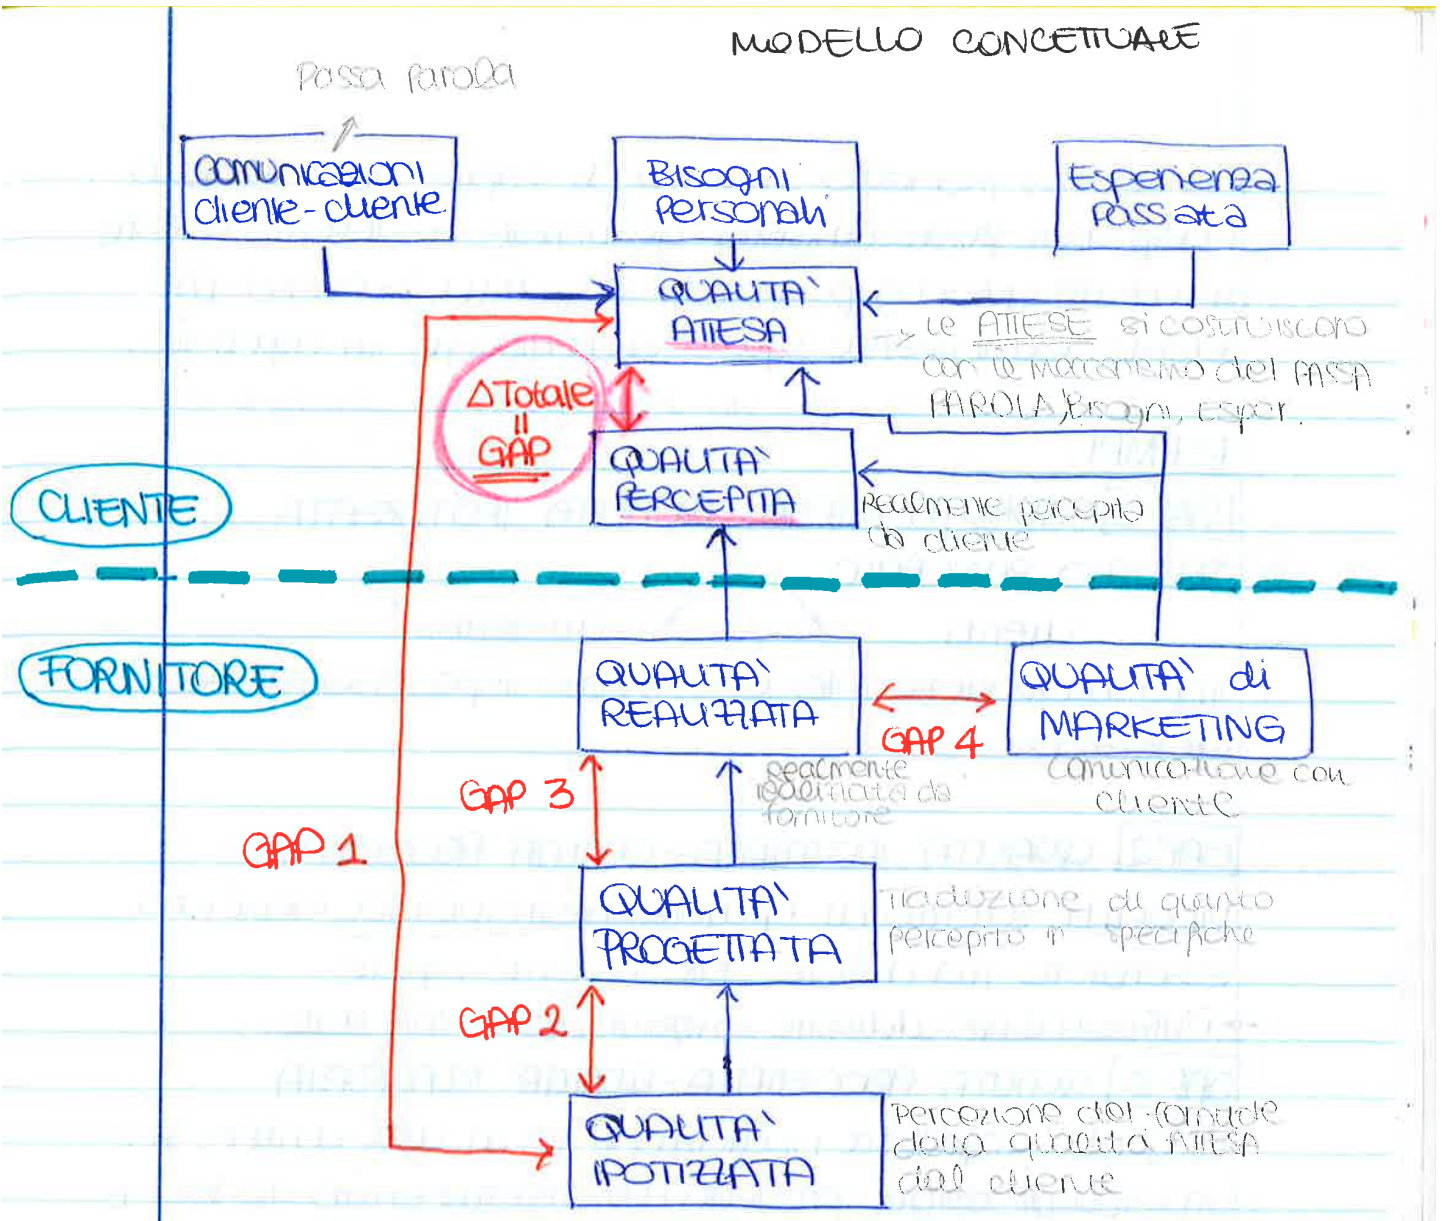 MODELLO CONCETTUALE
Passa parola
Comunicazioni
cliente-cliente
Bisogni
Personali
Esperienza
Passata
QUALITA'
ATTESA
Le ATTESE si costruiscono
con le meccanismo del PASSA
PAROLA, Bisogni, Esper.
Δ Totale
=
GAP
QUALITA'
PERCEPITA
Realmente percepita
da cliente
CLIENTE
FORNITORE
QUALITA'
REALIZZATA
GAP 4
QUALITA' di
MARKETING
Realmente
da
fornitore
Comunicazione con
cliente
GAP 3
GAP 1
QUALITA'
PROGETTATA
Traduzione di quanto
percepito in specifiche
GAP 2
QUALITA'
IPOTIZZATA
Percezione del
della qualità ATTESA
dal cliente